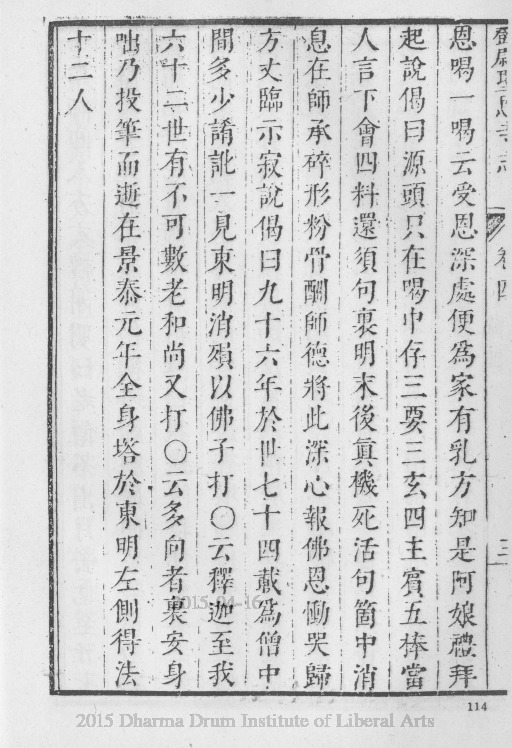 卷四
三
恩喝一喝云受恩深處便爲家有乳方知是阿娘禮拜
起說偈曰源頭只在喝中存三要三玄四主賓五棒當
人言下會四料還須句裏明末後眞機死活句箇中消
息在師承碎形粉骨酬師德將此深心報佛恩慟哭歸
方丈臨示寂說偈曰九十六年於世七十四載爲僧中
間多少誵訛一見東明消殞以佛子打〇云釋迦至我
六十二世有不可數老和尚又打〇云多向者裏安身
咄乃投筆而逝在景泰元年全身塔於東明左側得法
十二人
114
2015-04-16
2015 Dharma Drum Institute of Liberal Arts